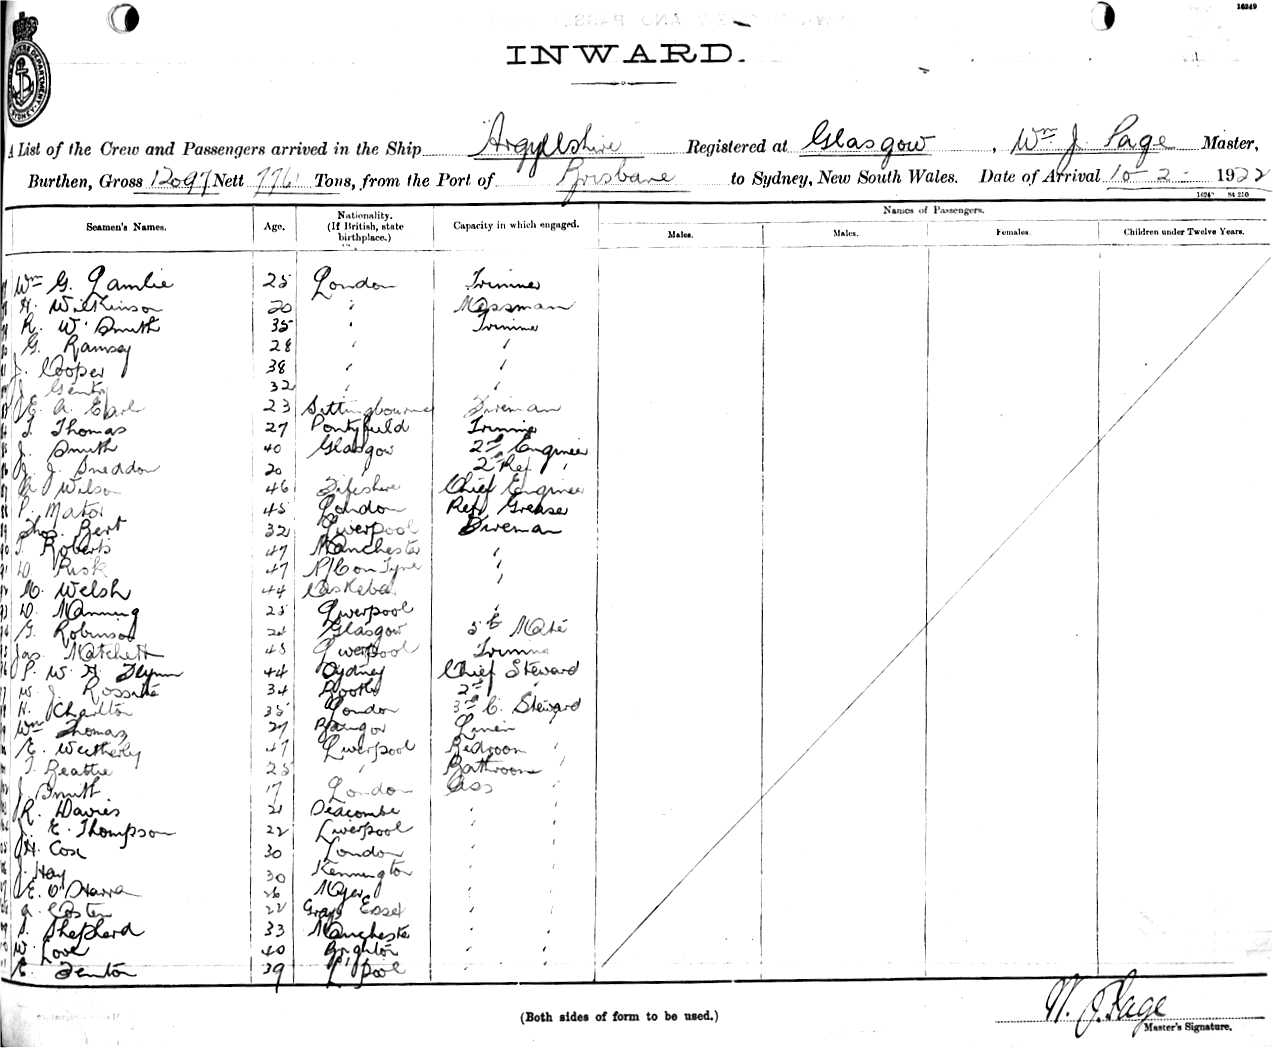 16249
INWARD.
A List of the Crew and Passengers arrived in the Ship Argyllshire Registered at Glasgow, Wm J. Page Master,
Burthen, Gross 12097 Nett 7761 Tons, from the Port of Brisbane to Sydney, New South Wales. Date of Arrival 10-2-1922
Seamen's Names. Age. Nationality. (If British, state birthplace.) Capacity in which engaged. Names of Passengers.
Males. Males. Females. Children under Twelve Years.
Wm G. 25 London Trimmer
H. Wilkinson 20 " Messman
R. W. Smith 35 " Trimmer
G. Ramsey 28 " "
J. Cooper 38 " "
J. Gentry 32 " "
E. A. Earl 23 Sittingbourne Fireman
T. Thomas 27 Trimmer
J. Smith 40 Glasgow 2nd Engineer
J. J. Sneddon 20 " 2nd Ref "
A. Wilson 46 Fifeshire Chief Engineer
P. Mator 45 London Ref Greaser
Thos. Bert 32 Liverpool Fireman
T. Roberts 47 Manchester "
D. Risk 47 N/C on Tyne "
M. Welsh 44 "
D. Manning 25 Liverpool "
G. Robinson 21 Glasgow 5th Mate
Jas. Matchett 45 Liverpool Trimmer
P. W. H. Flynn 44 Sydney Chief Steward
W. J. Rossite 34 Bootle 2nd "
H. Charlton 35 London 3rd C. Steward
Wm Thomas 27 Bangor Linen "
E. Weetherly 47 Liverpool Bedroom "
T. Beattie 25 " Bathroom "
J. Smith 17 London Ass "
R. Davies 21 Seacombe " "
J. E. Thompson 22 Liverpool " "
H. Cox 30 London " "
J. Hay 30 Kennington " "
E. O'Harra 26 " "
A. Coster 22 Grays Essex " "
S. Shepherd 33 Manchester " "
W. Love 40 Brighton " "
E. Fenton 39 L'pool " "
(Both sides of form to be used.)
W. J. Page
Master's Signature.